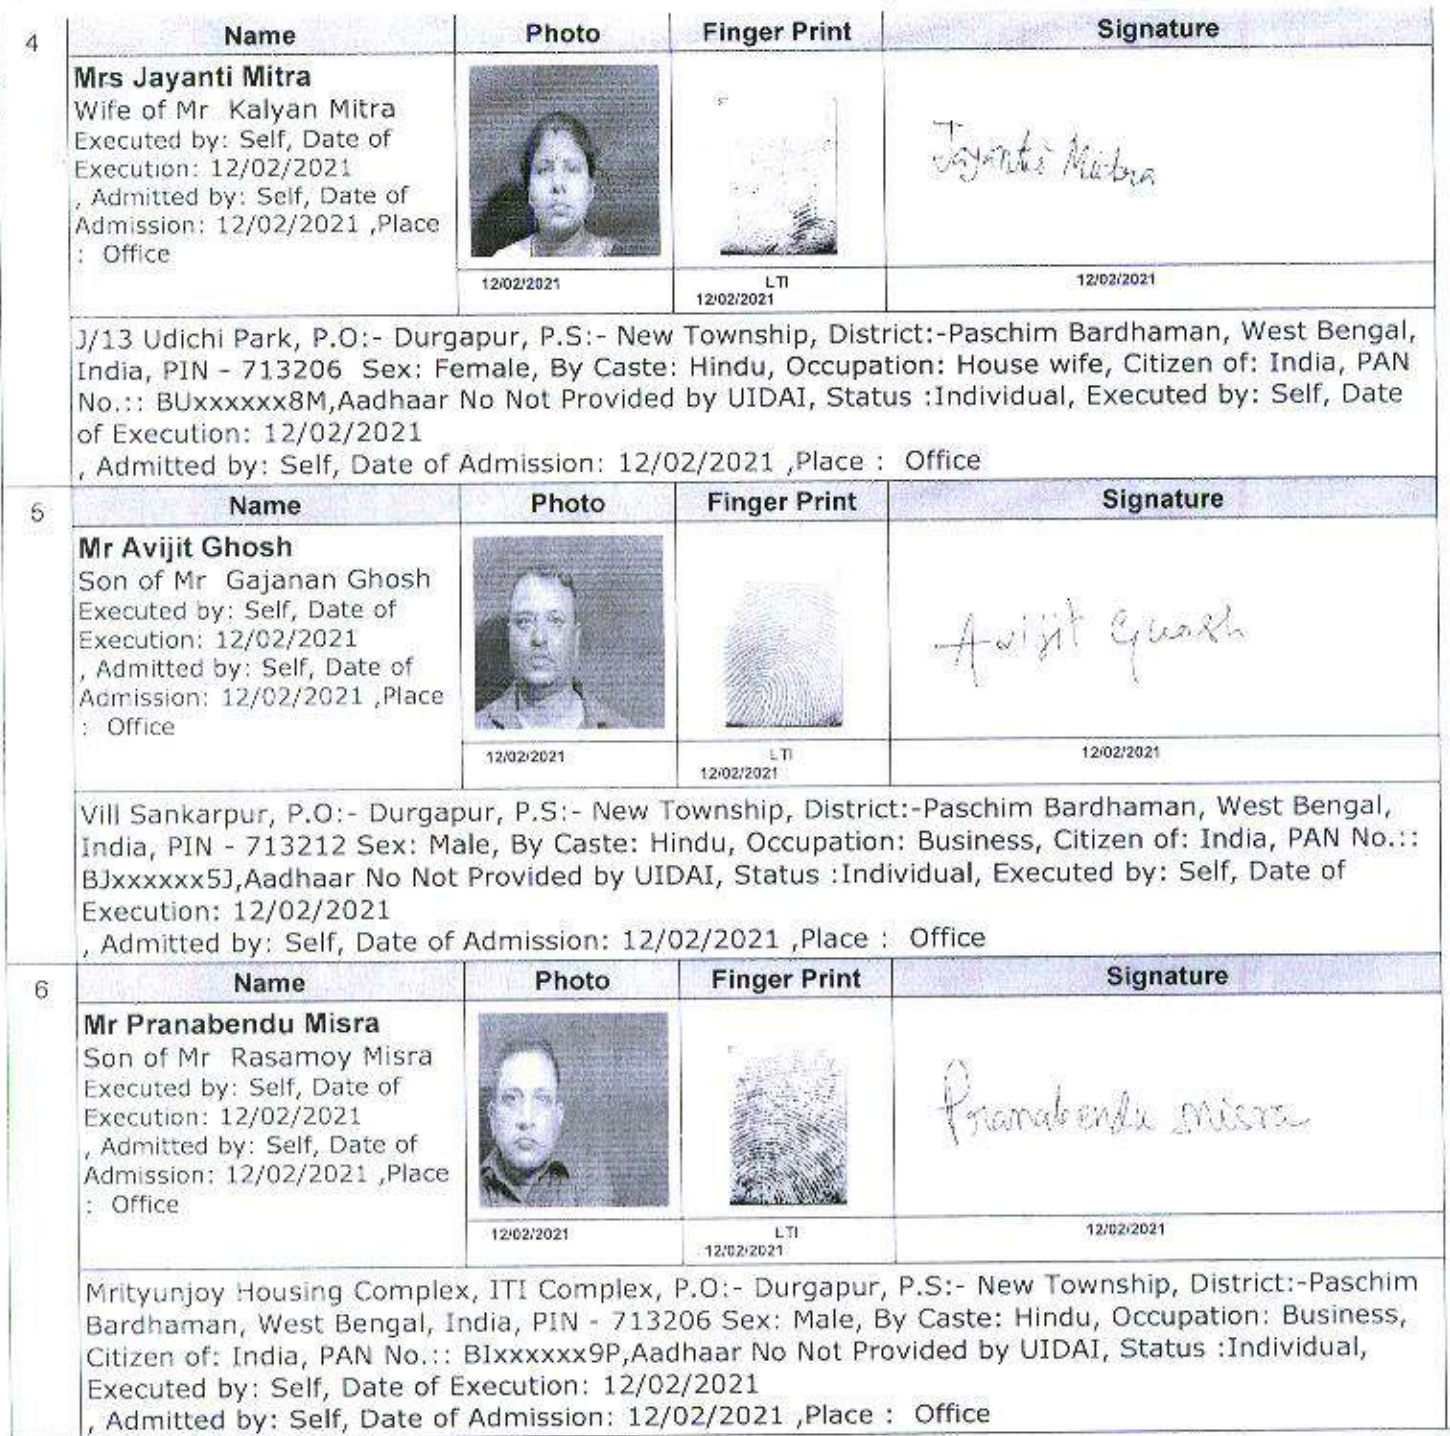 4 Name Photo Finger Print Signature
Mrs Jayanti Mitra
Wife of Mr Kalyan Mitra
Executed by: Self, Date of
Execution: 12/02/2021
, Admitted by: Self, Date of
Admission: 12/02/2021 ,Place
: Office
Jayanti Mitra
12/02/2021 LTI 12/02/2021
12/02/2021
J/13 Udichi Park, P.O:- Durgapur, P.S:- New Township, District:-Paschim Bardhaman, West Bengal,
India, PIN - 713206 Sex: Female, By Caste: Hindu, Occupation: House wife, Citizen of: India, PAN
No.:: BUxxxxxx8M,Aadhaar No Not Provided by UIDAI, Status :Individual, Executed by: Self, Date
of Execution: 12/02/2021
, Admitted by: Self, Date of Admission: 12/02/2021 ,Place : Office
5 Name Photo Finger Print Signature
Mr Avijit Ghosh
Son of Mr Gajanan Ghosh
Executed by: Self, Date of
Execution: 12/02/2021
, Admitted by: Self, Date of
Admission: 12/02/2021 ,Place
: Office
Avijit Ghosh
12/02/2021 LTI 12/02/2021
12/02/2021
Vill Sankarpur, P.O:- Durgapur, P.S:- New Township, District:-Paschim Bardhaman, West Bengal,
India, PIN - 713212 Sex: Male, By Caste: Hindu, Occupation: Business, Citizen of: India, PAN No.::
BJxxxxxx5J,Aadhaar No Not Provided by UIDAI, Status :Individual, Executed by: Self, Date of
Execution: 12/02/2021
, Admitted by: Self, Date of Admission: 12/02/2021 ,Place : Office
6 Name Photo Finger Print Signature
Mr Pranabendu Misra
Son of Mr Rasamoy Misra
Executed by: Self, Date of
Execution: 12/02/2021
, Admitted by: Self, Date of
Admission: 12/02/2021 ,Place
: Office
Pranabendu Misra
12/02/2021 LTI 12/02/2021
12/02/2021
Mrityunjoy Housing Complex, ITI Complex, P.O:- Durgapur, P.S:- New Township, District:-Paschim
Bardhaman, West Bengal, India, PIN - 713206 Sex: Male, By Caste: Hindu, Occupation: Business,
Citizen of: India, PAN No.:: BIxxxxxx9P,Aadhaar No Not Provided by UIDAI, Status :Individual,
Executed by: Self, Date of Execution: 12/02/2021
, Admitted by: Self, Date of Admission: 12/02/2021 ,Place : Office